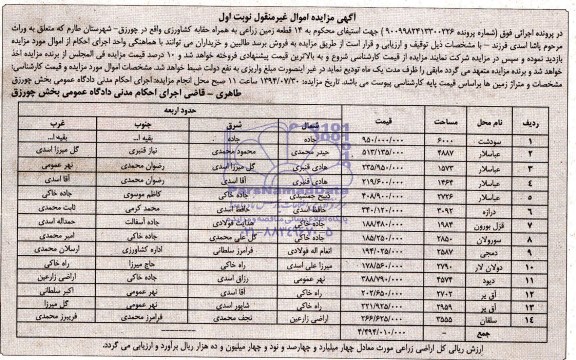 آگهی مزایده اموال غیرمنقول نوبت اول
در پرونده اجرائی فوق (شماره پرونده ۹۰۰۹۹۸۲۴۱۲۳۰۰۲۳۶) جهت استیفای محکوم به ۱۴ قطعه زمین زراعی به همراه حقابه کشاورزی واقع در چورزق- شهرستان طارم که متعلق به وراث
مرحوم پاشا اسدی فرزند – با مشخصات ذیل توقیف و ارزیابی و قرار است از طریق مزایده به فروش برسد طالبین و خریداران می توانند با هماهنگی واحد اجرای احکام از اموال مورد مزایده
بازدید نموده و سپس در مزایده شرکت نمایند مزایده از قیمت کارشناسی شروع و به بالاترین قیمت پیشنهادی فروخته خواهد شد و ۱۰ درصد قیمت مزایده فی المجلس از برنده مزایده اخذ
خواهد شد و برنده مزایده متعهد می گردد مابقی را ظرف مدت یک ماه تودیع نماید در غیر اینصورت مبلغ واریزی به نفع دولت ضبط خواهد شد. مشخصات اموال مورد مزایده و قیمت کارشناسی:
مشخصات و متراژ زمین ها براساس قیمت پایه کارشناسی پیوست می باشد. تاریخ مزایده: ۱۳۹۴/۰۷/۳۰ ساعت ۱۱ صبح محل انجام مزایده: اجرای احکام مدنی دادگاه عمومی بخش چورزق
طاهری - قاضی اجرای احکام مدنی دادگاه عمومی بخش چورزق
ردیف نام محل مساحت قیمت حدود اربعه
شمال شرق جنوب غرب
۱ سودشت ۶۰۰۰ ۹۵۰/۰۰۰/۰۰۰ جاده جاده بقیه ا... بقیه ا...
۲ عباسلار ۴۸۸۷ ۵۱۳/۱۳۵/۰۰۰ حیدر محمدی محمود محمدی نیاز قنبری گل میرزا اسدی
۳ عباسلار ۱۵۷۳ ۲۳۵/۹۵۰/۰۰۰ هادی قنبری گل میرزا اسدی رضوان محمدی نهر عمومی
۴ عباسلار ۱۴۶۴ ۲۱۹/۶۰۰/۰۰۰ هادی قنبری آقا اسدی رضوان محمدی آقا اسدی
۵ عباسلار ۲۷۲۶ ۴۰۸/۹۰۰/۰۰۰ ذبیح جمشیدی جاده خاکی کاظم موسوی جاده خاکی
۶ درازه ۳۰۹۲ ۳۴۰/۱۲۰/۰۰۰ حافظ اسدی حافظ اسدی محمد کرمی ثابت محمدی
۷ قزل بورون ۱۹۸۴ ۱۸۸/۴۸۰/۰۰۰ جاده خاکی هدایت فولادی جاده آسفالت حمداله اسدی
۸ سورولان ۲۸۵۰ ۱۸۵/۲۵۰/۰۰۰ جاده خاکی گل علی محمدی جاده خاکی امیر محمدی
۹ دمجی ۲۵۸۷ ۱۹۴/۰۲۵/۰۰۰ انعام اله فولادی فرامرز سلطانی اداره کشاورزی ارسلان محمدی
۱۰ دولان لار ۲۷۹۰ ۱۷۸/۵۶۰/۰۰۰ میرزا علی اسدی راه خاکی حاج میرزا راه خاکی
۱۱ دیبود ۴۵۷۴ ۳۸۸/۷۹۰/۰۰۰ نهر عمومی رزاق اسدی جاده خاکی اراضی زارعین
۱۲ آق پر ۲۷۰۲ ۲۰۲/۶۵۰/۰۰۰ راه خاکی آقا اسدی نهر عمومی اکبر سلطانی
۱۳ آق پر ۲۹۵۹ ۲۲۱/۹۲۵/۰۰۰ راه خاکی شاپور اسدی نهر عمومی گل میرزا
۱۴ سلقان ۳۵۵۵ ۲۶۶/۶۲۵/۰۰۰ اراضی زارعین نجف محمدی فرامرز محمدی فریبرز محمدی
جمع – ۴/۴۹۴/۰۱۰/۰۰۰
ارزش ریالی کل اراضی زراعی مورث معادل چهار میلیارد و چهارصد و نود و چهار میلیون و ده هزار ریال برآورد و ارزیابی می گردد.
ParsNamadData
پایگاه اطلاع رسانی مناقصه و مزایده
۰۲۱-۸۸۳۴۹۶۷۰-۵